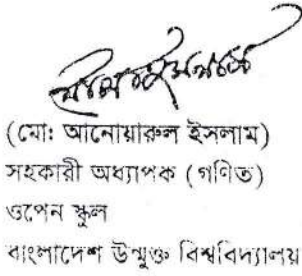 (মো: আনোয়ারুল ইসলাম)
সহকারী অধ্যাপক (গণিত)
ওপেন স্কুল
বাংলাদেশ উন্মুক্ত বিশ্ববিদ্যালয়